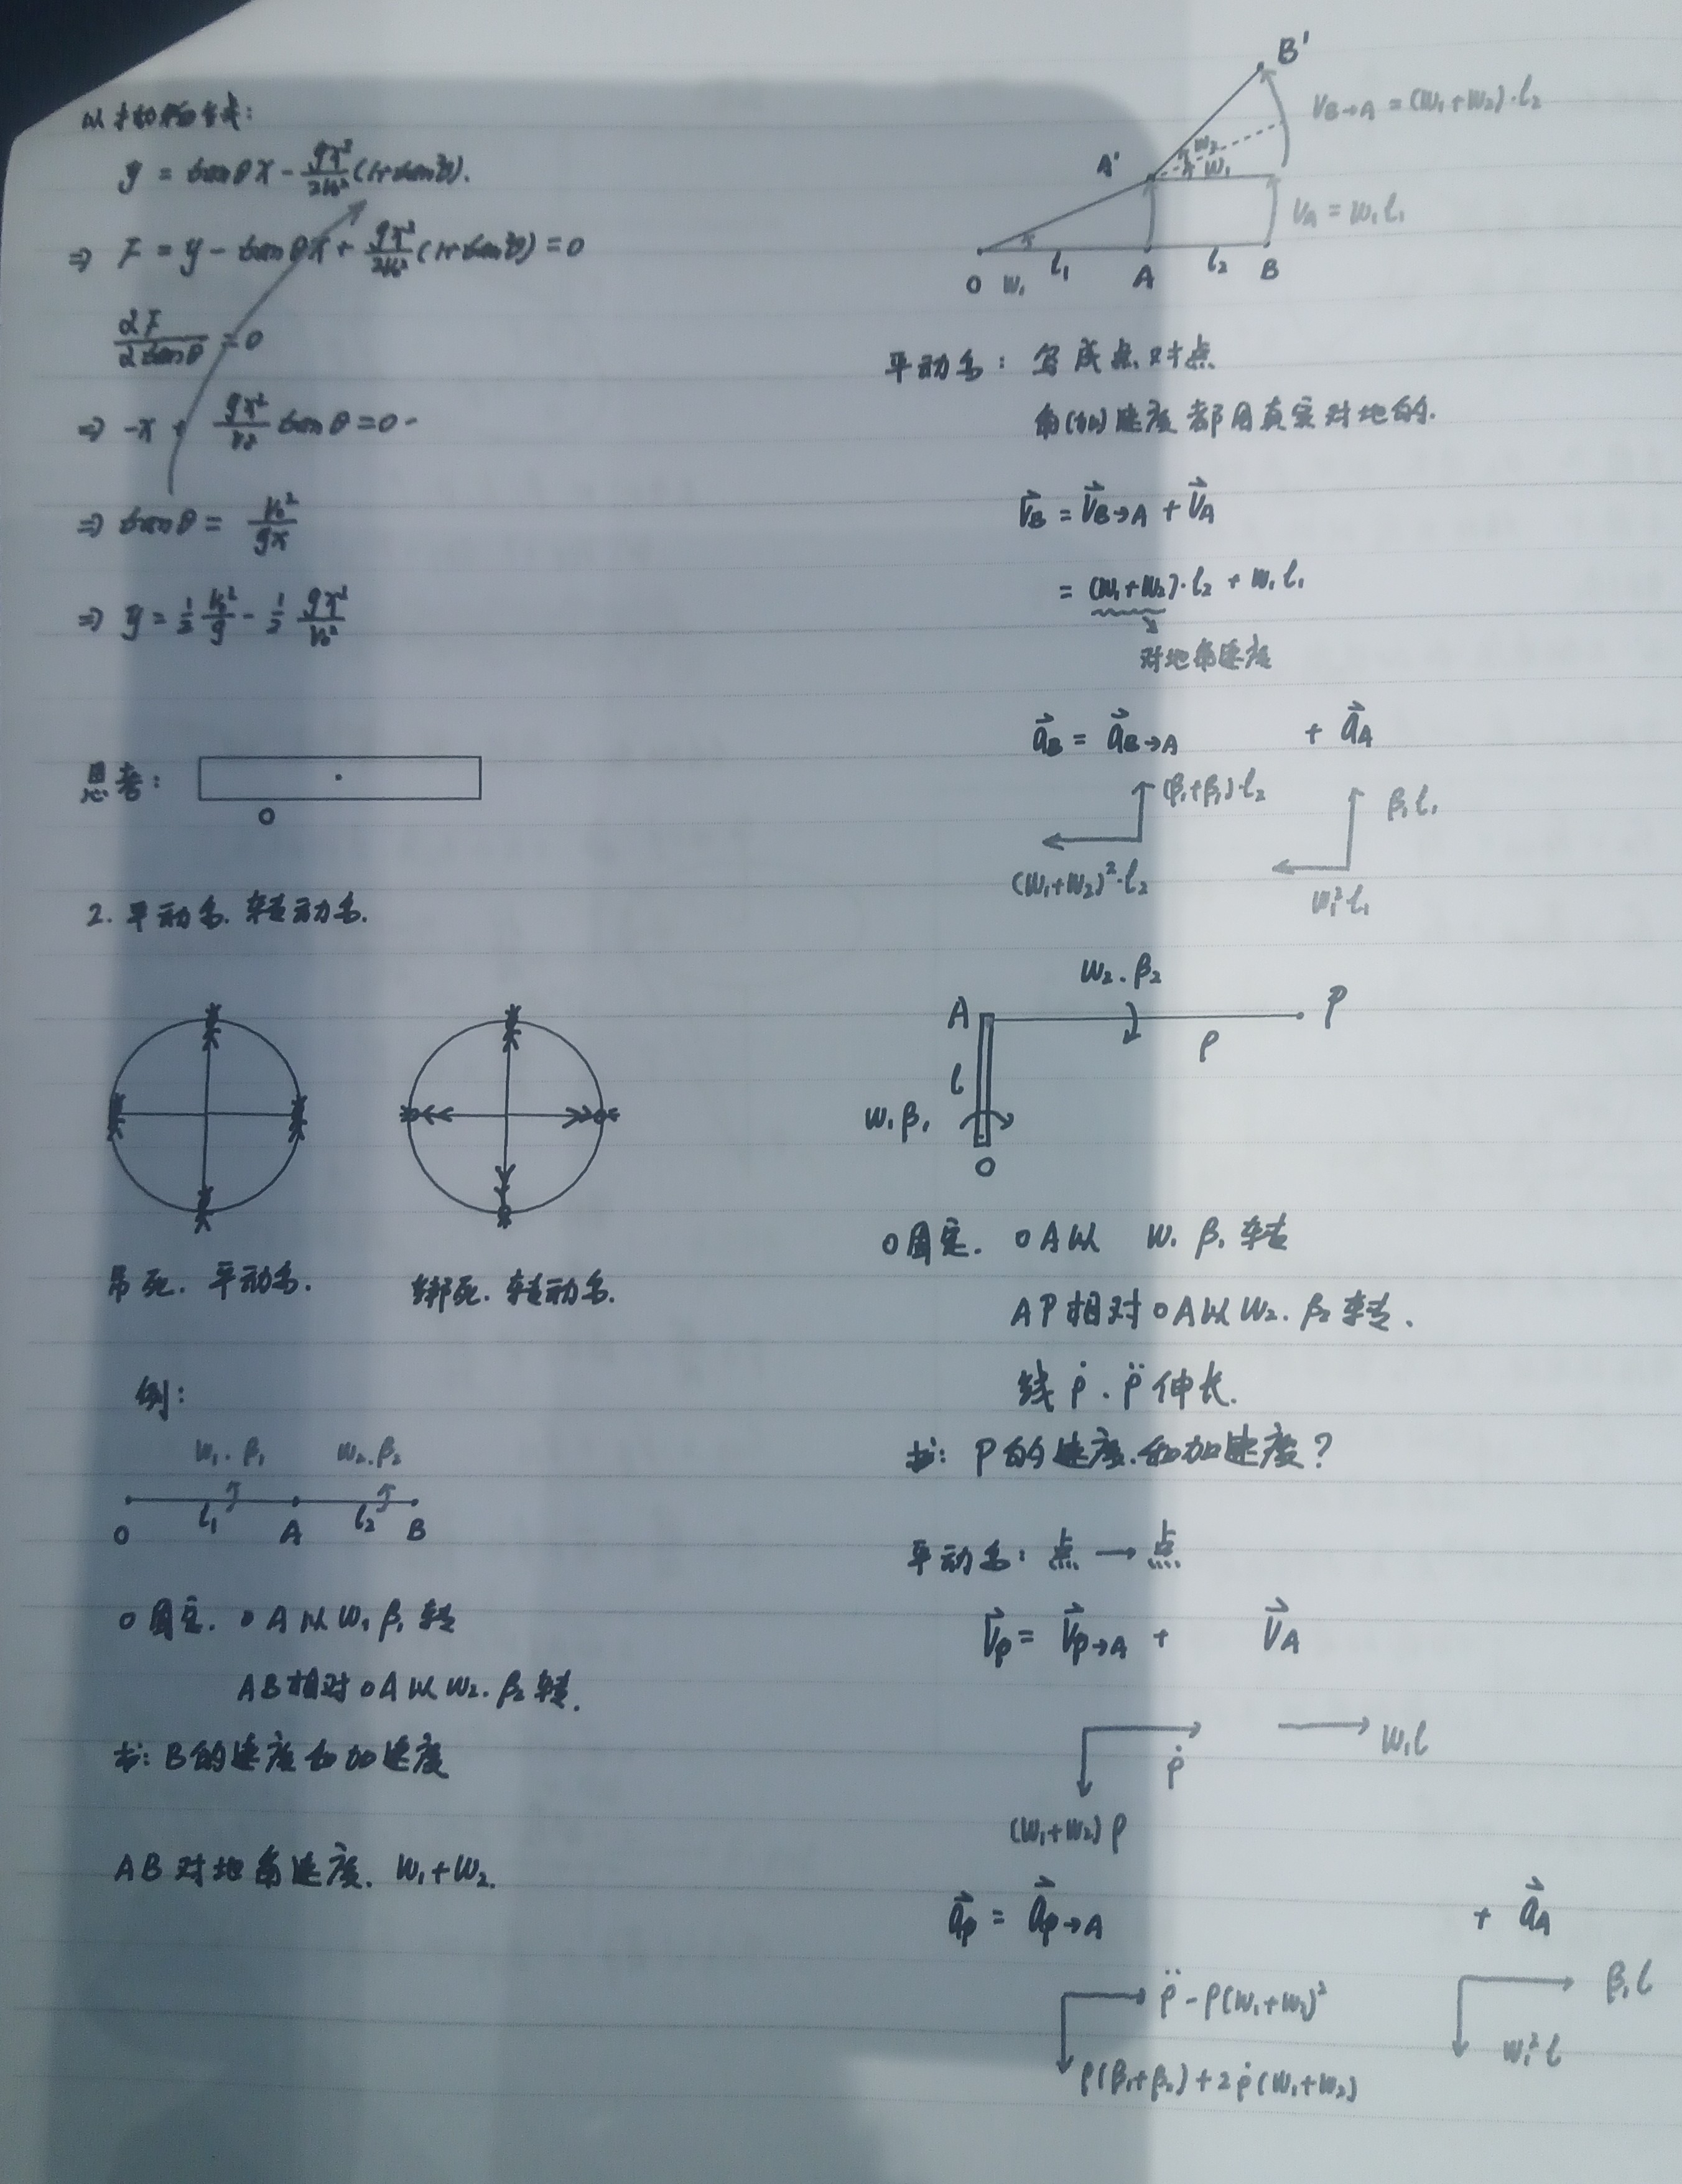 y = tanθx - gx²/2v₀² (1+tan²θ).
⇒ F = y - tanθx + gx²/2v₀² (1+tan²θ) = 0
∂F/∂tanθ = 0
⇒ -x + gx²/v₀² tanθ = 0
⇒ tanθ = v₀²/gx
⇒ y = 1/2 v₀²/g - 1/2 gx²/v₀²
思考:
O
2. 平动系. 转动系.
吊死. 平动系.
绑死. 转动系.
例:
w₁.β₁ w₂.β₂
O l₁ A l₂ B
O固定. OA以w₁β₁转
AB相对OA以w₂.β₂转.
求: B的速度和加速度
AB对地角速度. w₁+w₂.
B'
V_B→A = (w₁+w₂)·l₂
A' w₂ w₁
V_A = w₁l₁
O w₁ l₁ A l₂ B
平动系: 写成点对点
角(加)速度都用真实对地的.
V⃗_B = V⃗_B→A + V⃗_A
= (w₁+w₂)·l₂ + w₁l₁
对地角速度
a⃗_B = a⃗_B→A + a⃗_A
(β₁+β₂)·l₂ β₁l₁
(w₁+w₂)²·l₂ w₁²l₁
w₂.β₂
A ρ P
l
w₁β₁
O
O固定. OA以 w₁ β₁ 转
AP相对OA以w₂.β₂转.
线 ρ̇ . ρ̈ 伸长.
求: P的速度.和加速度?
平动系: 点 → 点
V⃗_P = V⃗_P→A + V⃗_A
ρ̇ w₁l
(w₁+w₂)ρ
a⃗_P = a⃗_P→A + a⃗_A
ρ̈ - ρ(w₁+w₂)² β₁l
ρ(β₁+β₂) + 2ρ̇(w₁+w₂) w₁²l